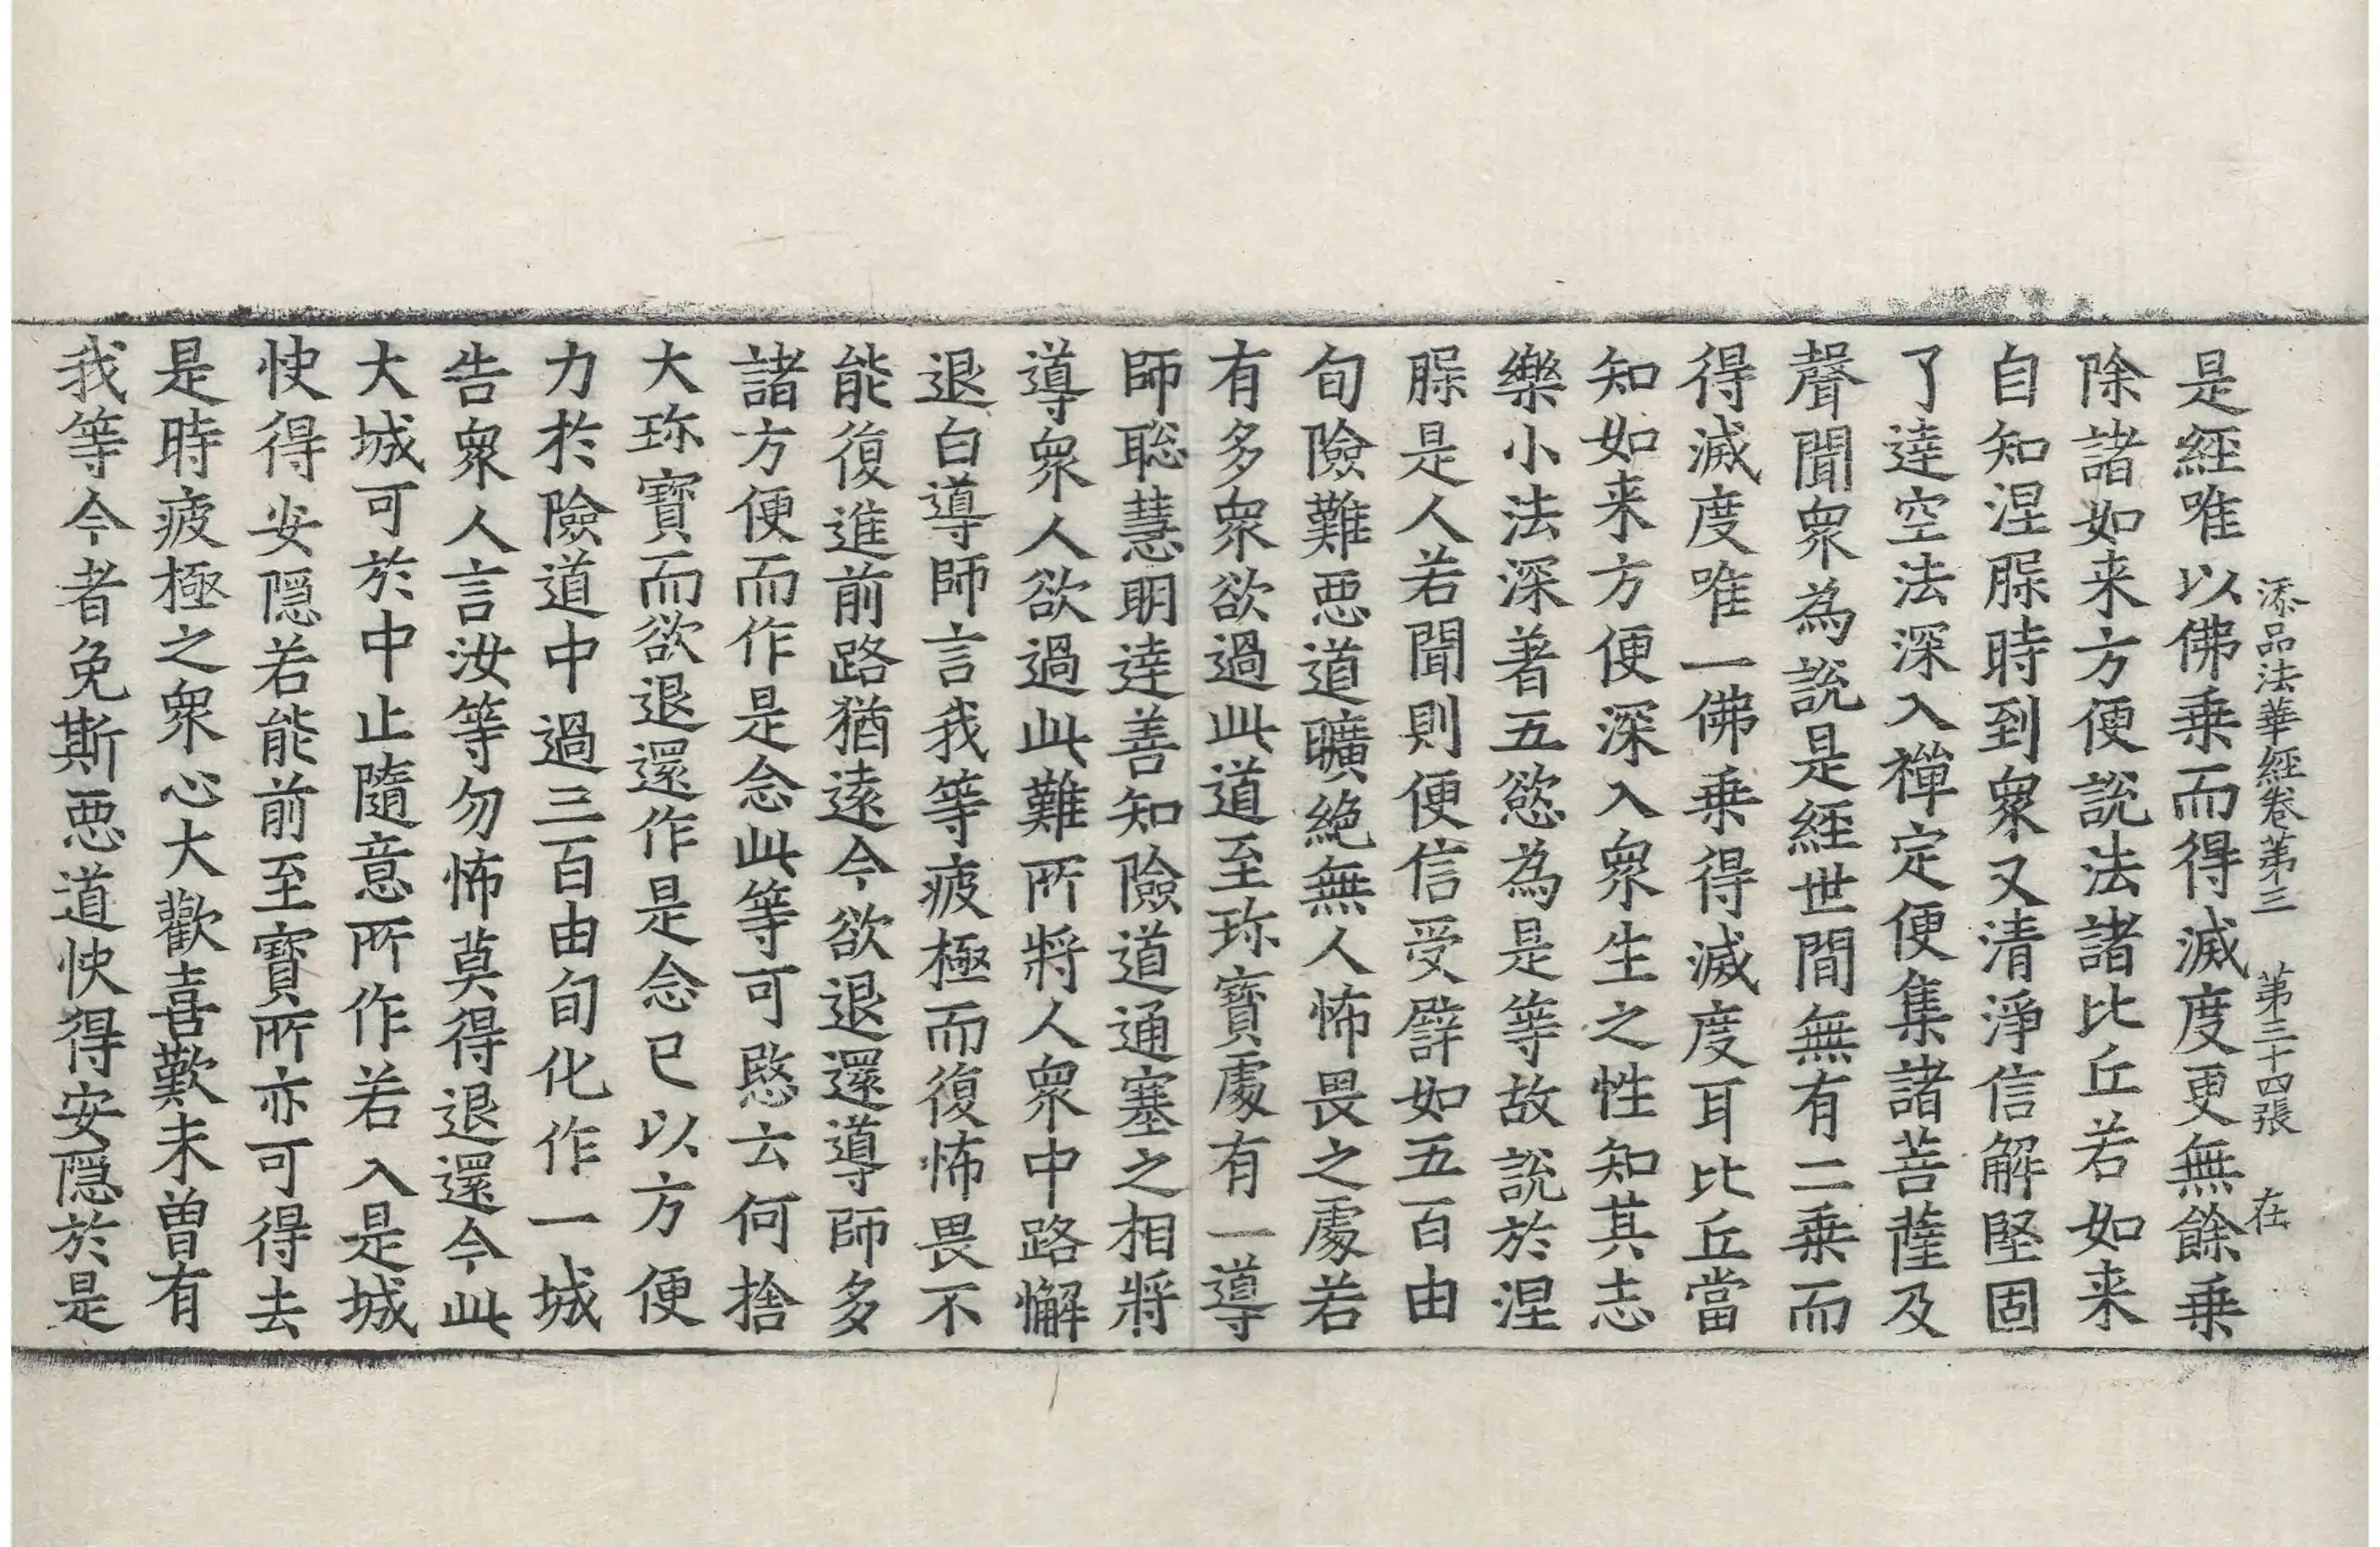 添品法華經卷第三 第三十四張 在
是經唯以佛乗而得滅度更無餘乗
除諸如来方便說法諸比丘若如来
自知涅脲時到衆又清淨信解堅固
了達空法深入禪定便集諸菩薩及
聲聞衆為說是經世間無有二乗而
得滅度唯一佛乗得滅度耳比丘當
知如来方便深入衆生之性知其志
樂小法深著五慾為是等故說於涅
脲是人若聞則便信受譬如五百由
旬險難惡道曠絶無人怖畏之處若
有多衆欲過此道至珎寶處有一導
師聡慧明達善知險道通塞之相將
導衆人欲過此難所將人衆中路懈
退白導師言我等疲極而復怖畏不
能復進前路猶遠今欲退還導師多
諸方便而作是念此等可愍云何捨
大珎寶而欲退還作是念已以方便
力於險道中過三百由旬化作一城
告衆人言汝等勿怖莫得退還今此
大城可於中止隨意所作若入是城
快得安隠若能前至寶所亦可得去
是時疲極之衆心大歡喜歎未曽有
我等今者免斯惡道快得安隠於是